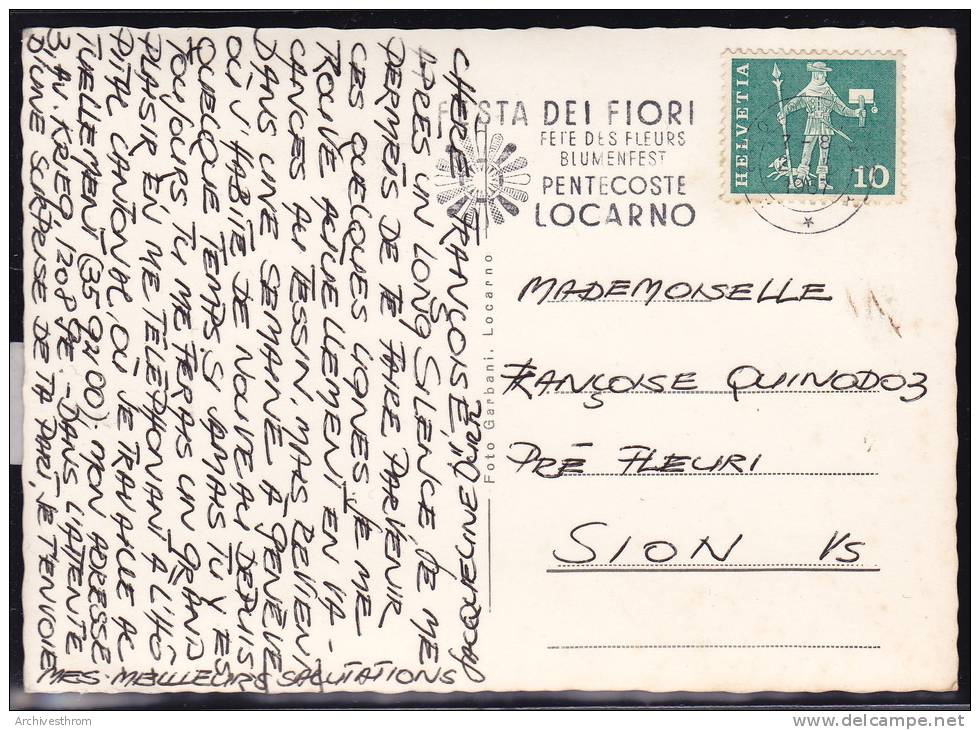 CHÈRE FRANÇOISE,
APRÈS UN LONG SILENCE, JE ME
PERMETS DE TE FAIRE PARVENIR
CES QUELQUES LIGNES. JE ME
TROUVE ACTUELLEMENT EN VA-
CANCES AU TESSIN, MAIS REVIENS
DANS UNE SEMAINE À GENÈVE
OÙ J'HABITE DE NOUVEAU DEPUIS
QUELQUE TEMPS. SI JAMAIS TU Y ES
TOUJOURS TU ME FERAS UN GRAND
PLAISIR EN ME TÉLÉPHONANT À L'HÔ
PITAL CANTONAL, OÙ JE TRAVAILLE AC
TUELLEMENT (35 92 00). MON ADRESSE
3, AV. KRIEG, 1208 GE. - DANS L'ATTENTE
D'UNE SURPRISE DE TA PART JE T'ENVOIE
MES MEILLEURES SALUTATIONS
JACQUELINE
Foto Garbani, Locarno
FESTA DEI FIORI
FETE DES FLEURS
BLUMENFEST
PENTECOSTE
LOCARNO
HELVETIA
10
MADEMOISELLE
FRANÇOISE QUINODOZ
PRÉ FLEURI
SION VS
Archivesthrom
delcampe.net